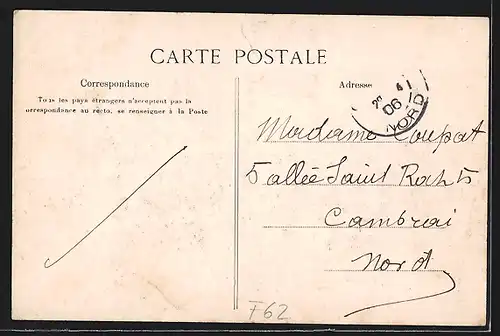 CARTE POSTALE
Correspondance
Tous les pays étrangers n'acceptent pas la
correspondance au recto, se renseigner à la Poste
Adresse
06
NORD
Madame Coupat
5 allée Saint Roch 5
Cambrai
Nord
F62